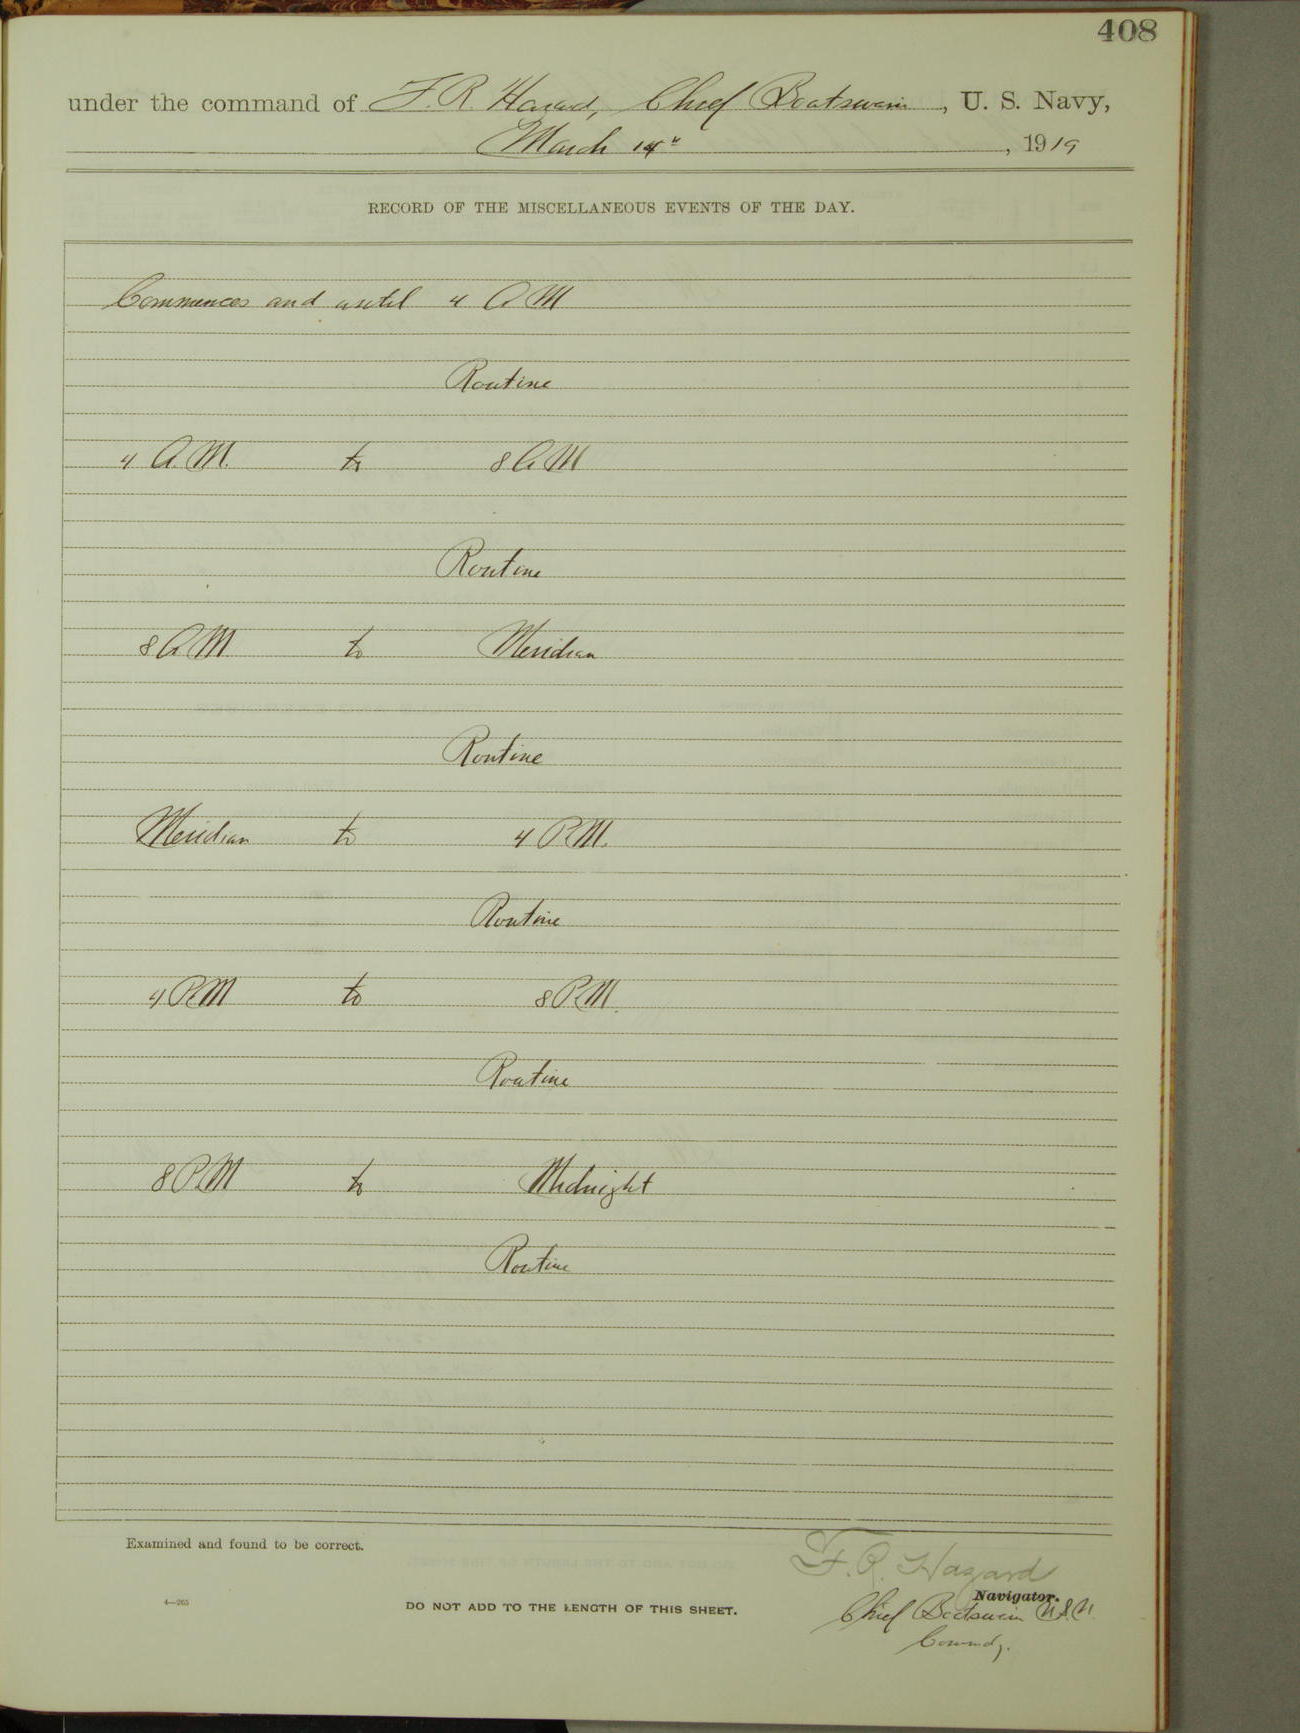 408
under the command of F. R. Hazard, Chief Boatswain, U. S. Navy,
March 14", 1919
RECORD OF THE MISCELLANEOUS EVENTS OF THE DAY.
Commences and until 4 AM
Routine
4 A.M. to 8 AM
Routine
8 AM to Meridian
Routine
Meridian to 4 P.M.
Routine
4 PM to 8 P.M.
Routine
8 P.M to Midnight
Routine
Examined and found to be correct.
F. R. Hazard
Navigator.
4—265 DO NOT ADD TO THE LENGTH OF THIS SHEET.
Chief Boatswain U.S.N.
Commdg.